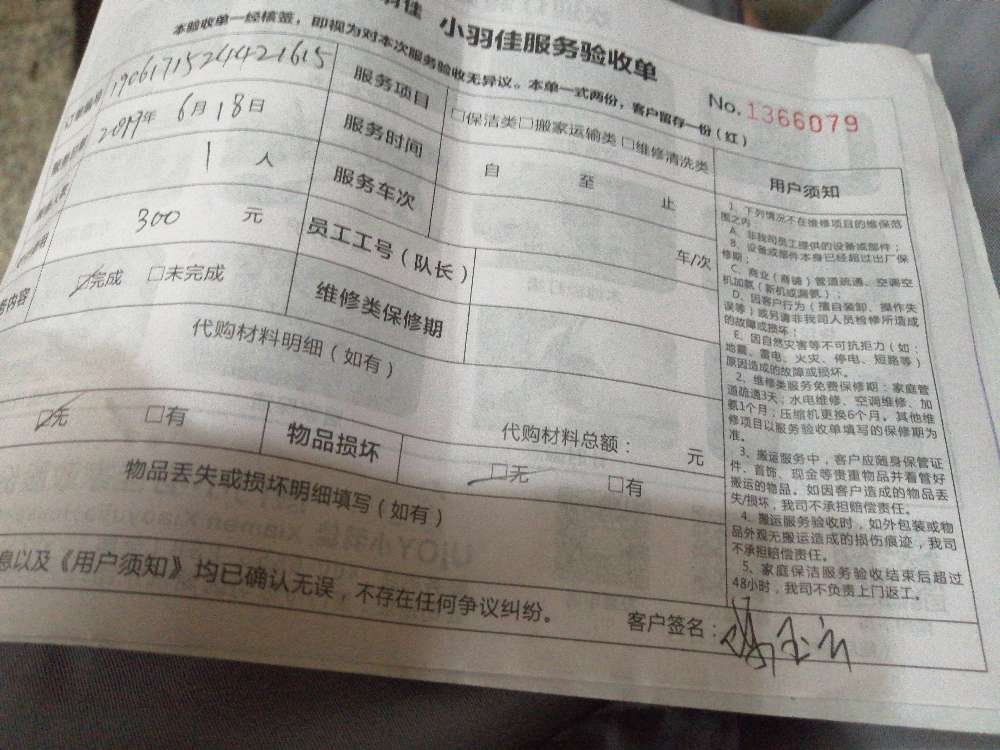 小羽佳服务验收单
本验收单一经核签，即视为对本次服务验收无异议。本单一式两份，客户留存一份（红）
No.1366079
1906171524421615
服务项目
□保洁类□搬家运输类□维修清洗类
年 6月18日
服务时间
自 至 止
1 人
服务车次
车/次
300 元
员工工号（队长）
务内容
☑完成 □未完成
维修类保修期
代购材料明细（如有）
代购材料总额： 元
☑无 □有
物品损坏
☑无 □有
物品丢失或损坏明细填写（如有）
息以及《用户须知》均已确认无误，不存在任何争议纠纷。
客户签名：
用户须知
1、下列情况不在维修项目的维保范
围之内：
A、非我司员工提供的设备或部件；
B、设备或部件本身已经超过出厂保
修期；
C、商业（商铺）管道疏通、空调空
机加氨（新机或漏氨）；
D、因客户行为（擅自装卸、操作失
误等）或另请非我司人员检修所造成
的故障或损坏；
E、因自然灾害等不可抗拒力（如：
地震、雷电、火灾、停电、短路等）
原因造成的故障或损坏。
2、维修类服务免费保修期：家庭管
道疏通3天；水电维修、空调维修、加
氨1个月；压缩机更换6个月。其他维
修项目以服务验收单填写的保修期为
准。
3、搬运服务中，客户应随身保管证
件、首饰、现金等贵重物品并看管好
搬运的物品。如因客户造成的物品丢
失/损坏，我司不承担赔偿责任。
4、搬运服务验收时，如外包装或物
品外观无搬运造成的损伤痕迹，我司
不承担赔偿责任。
5、家庭保洁服务验收结束后超过
48小时，我司不负责上门返工。